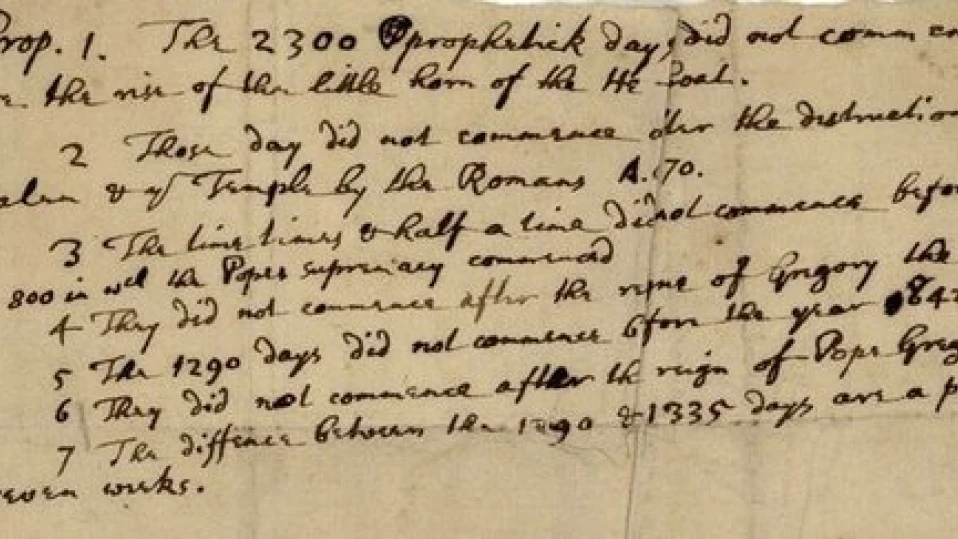 Prop. 1. The 2300 prophetick days did not comm
the rise of the little horn of the He Goat.
2 Those day did not commence after the destructio
alem & ye Temple by the Romans A. 70.
3 The time times & half a time did not commence befo
800 in wch the Popes supremacy commenced
4 They did not commence after the reigne of Gregory the
5 The 1290 days did not commence before the year 842
6 They did not commence after the reign of Pope Greg
7 The diffence between the 1290 & 1335 days are a p
seven weeks.